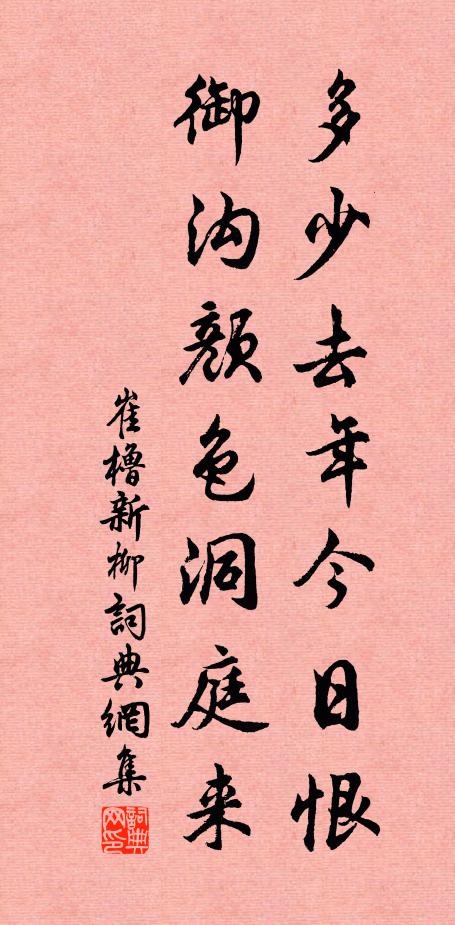 多少去年今日恨
御沟颜色洞庭来
崔橹新柳詞典網集
詞典网印